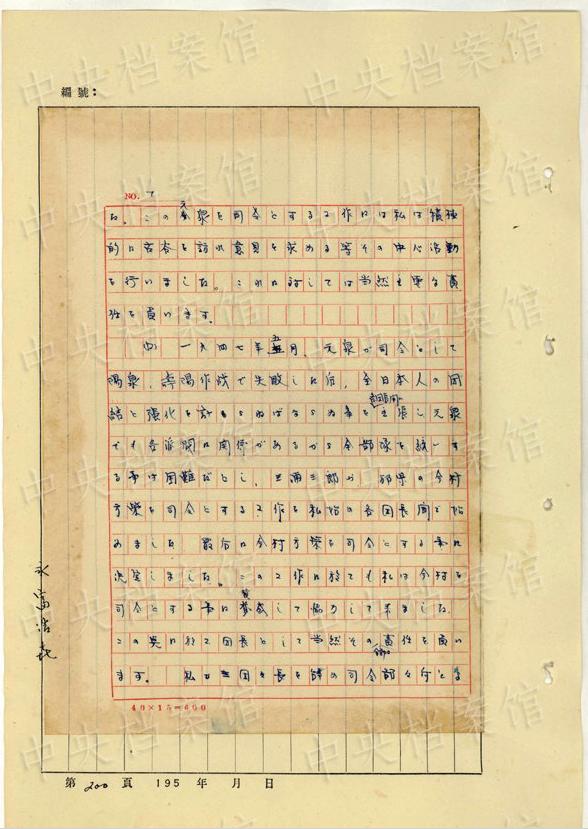 編號：
NO. 7
た。この元泉を司令とする工作には私は積極
的に各々を訪れ意見を求める等その中心活動
を行いました。これに対しては当然主要な責
任を負います。
一九四七年五月、元泉が司令として
陽泉、壽陽作戦で失敗した后、全日本人の団
結と強化を計らねばならぬ事を主張し元泉
でも各 関に関係があるから全部隊を統一す
る事は困難だとし、三浦三郎が 今村
方策を司令とする工作を私始め各団長間で始
めました 最后に今村方策を司令とする事に
決定しました。この工作に於ても私は今村を
司令とする事に賛成して協力して来ました。
この点に於て団長として当然その責任を負い
ます。 私が三団々長を の司令部々付とな
40×15=600
永富浩喜
第 200 頁 195 年 月 日
中央档案馆